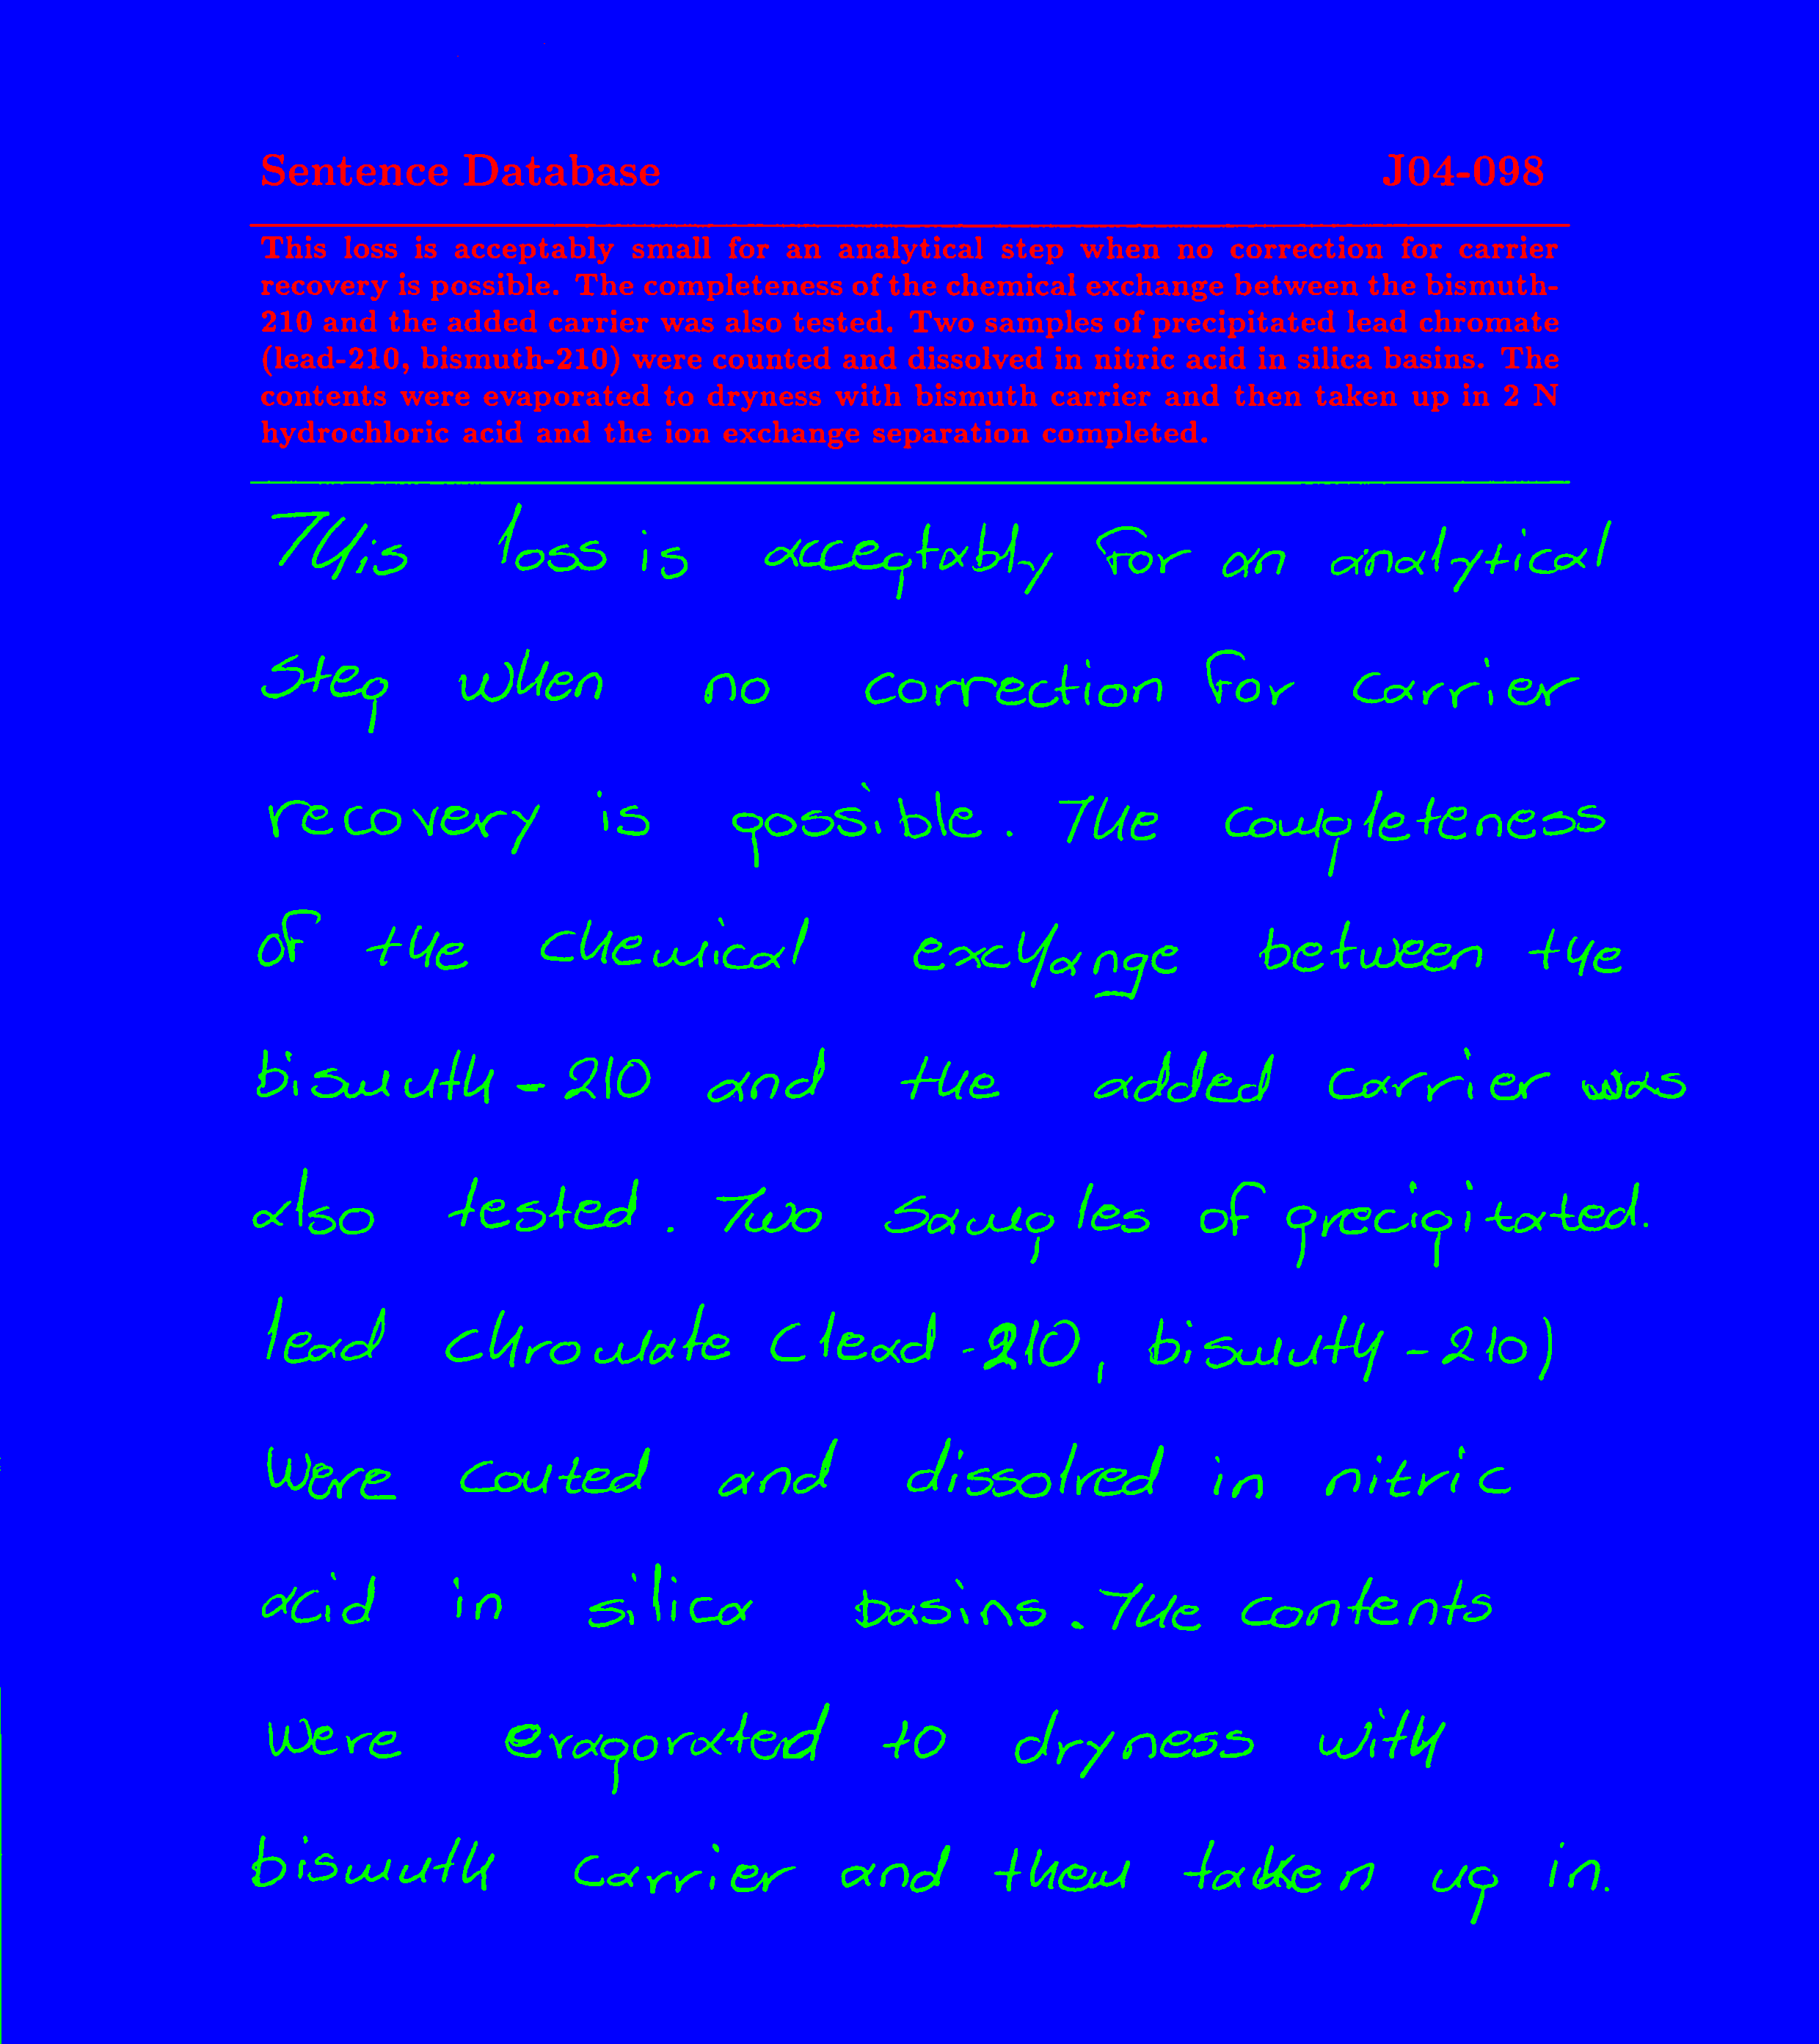 Sentence Database J04-098
This loss is acceptably small for an analytical step when no correction for carrier
recovery is possible. The completeness of the chemical exchange between the bismuth-
210 and the added carrier was also tested. Two samples of precipitated lead chromate
(lead-210, bismuth-210) were counted and dissolved in nitric acid in silica basins. The
contents were evaporated to dryness with bismuth carrier and then taken up in 2 N
hydrochloric acid and the ion exchange separation completed.
This loss is acceptably for an analytical
step when no correction for carrier
recovery is possible. The completeness
of the chemical exchange between the
bismuth-210 and the added carrier was
also tested. Two samples of precipitated.
lead chromate (lead-210, bismuth-210)
were couted and dissolved in nitric
acid in silica basins. The contents
were evaporated to dryness with
bismuth carrier and then taken up in.